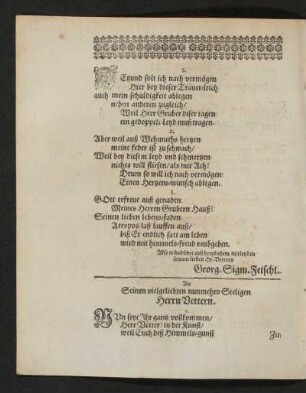 1.
JEtzund solt ich nach vermögen
Hier bey dieser Trauer-leich
auch mein schuldigkeit ablegen
neben anderen zugleich/
Weil Herr Gruber dieser tagen
ein gedoppelt Leyd muß tragen.
2.
Aber weil auß Wehmuths hertzen
meine feder ist zu schwach/
Weil bey diesem leyd und schmertzen
nichts will fliessen/als nur Ach!
Drum so will ich nach vermögen
Einen Hertzens-wunsch ablegen.
3.
GOtt erfreue auß genaden
Meines Herren Grubern Hauß!
Seinen lieben lebens-faden
Atropos laß lauffen auß/
biß Er endlich satt am leben
wird mit himmels-freud umbgeben.
seinem lieben Hr. Vettern
Georg. Sigm. Feischl.
An
Seinen vielgeliebten nunmehro Seeligen
Herrn Vettern.
1.
NUn seyt Ihr gantz vollkommen/
Herr Vetter/ in der Kunst/
weil Euch deß Himmels-gunst
Zu: